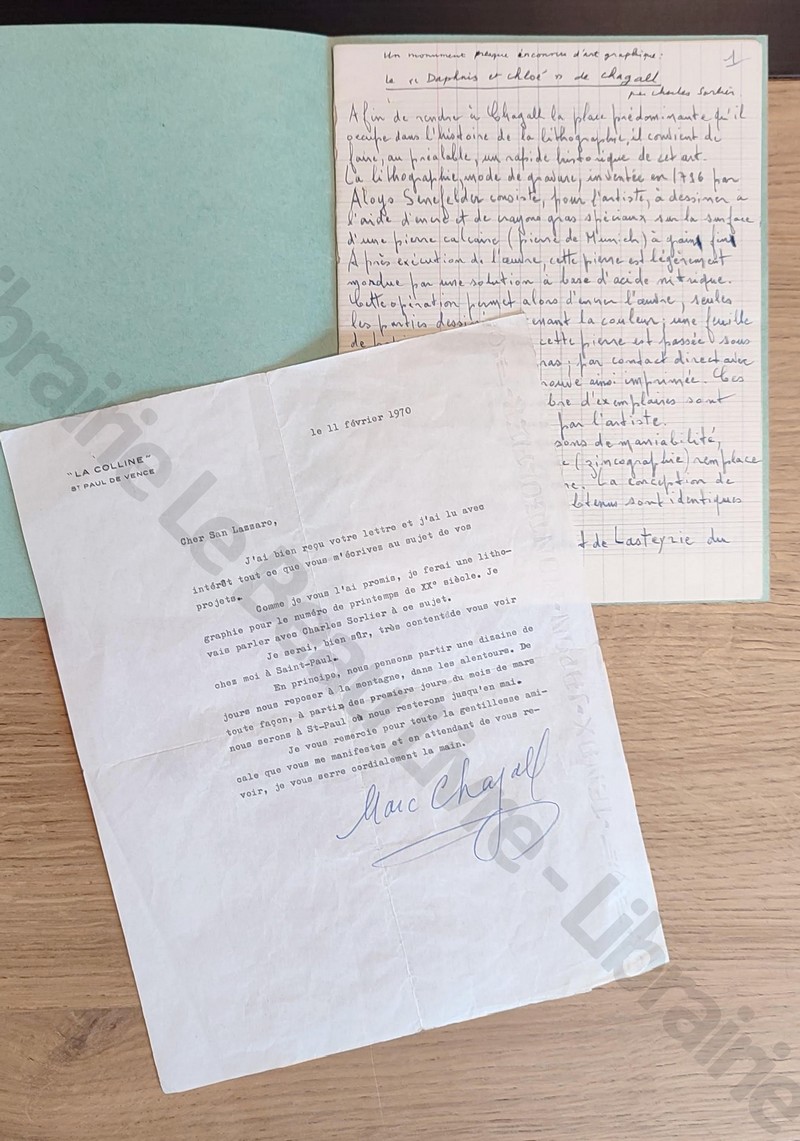 Un monument presque inconnu d'art graphique :
le « Daphnis et Chloé » de Chagall
par Charles Sorlier
1
Afin de rendre à Chagall la place prédominante qu'il
occupe dans l'histoire de la lithographie, il convient de
faire, au préalable, un rapide historique de cet art.
La lithographie, mode de gravure, inventée en 1796 par
Aloys Senefelder consiste, pour l'artiste, à dessiner à
l'aide d'encre et de crayons gras spéciaux sur la surface
d'une pierre calcaire (pierre de Munich) à grain fin
Après exécution de l'œuvre, cette pierre est légèrement
mordue par une solution à base d'acide nitrique.
Cette opération permet alors d'encrer l'œuvre, seules
les parties enant la couleur ; une feuille
de cette pierre est passée sous
ras ; par contact direct avec
rouve ainsi imprimée. Ces
bre d'exemplaires sont
par l'artiste.
sons de maniabilité,
(zincographie) remplace
La conception de
btenus sont identiques
t de Lasteyrie du
"LA COLLINE"
ST PAUL DE VENCE
le 11 février 1970
Cher San Lazzaro,
J'ai bien reçu votre lettre et j'ai lu avec
intérêt tout ce que vous m'écrives au sujet de vos
projets.
Comme je vous l'ai promis, je ferai une litho-
graphie pour le numéro de printemps de XXe siècle. Je
vais parler avec Charles Sorlier à ce sujet.
Je serai, bien sûr, très contentdde vous voir
chez moi à Saint-Paul.
En principe, nous pensons partir une dizaine de
jours nous reposer à la montagne, dans les alentours. De
toute façon, à partir des premiers jours du mois de mars
nous serons à St-Paul où nous resterons jusqu'en mai.
Je vous remercie pour toute la gentillesse ami-
cale que vous me manifestes et en attendant de vous re-
voir, je vous serre cordialement la main.
Marc Chagall
Librairie Le Beau Livre - Librairie